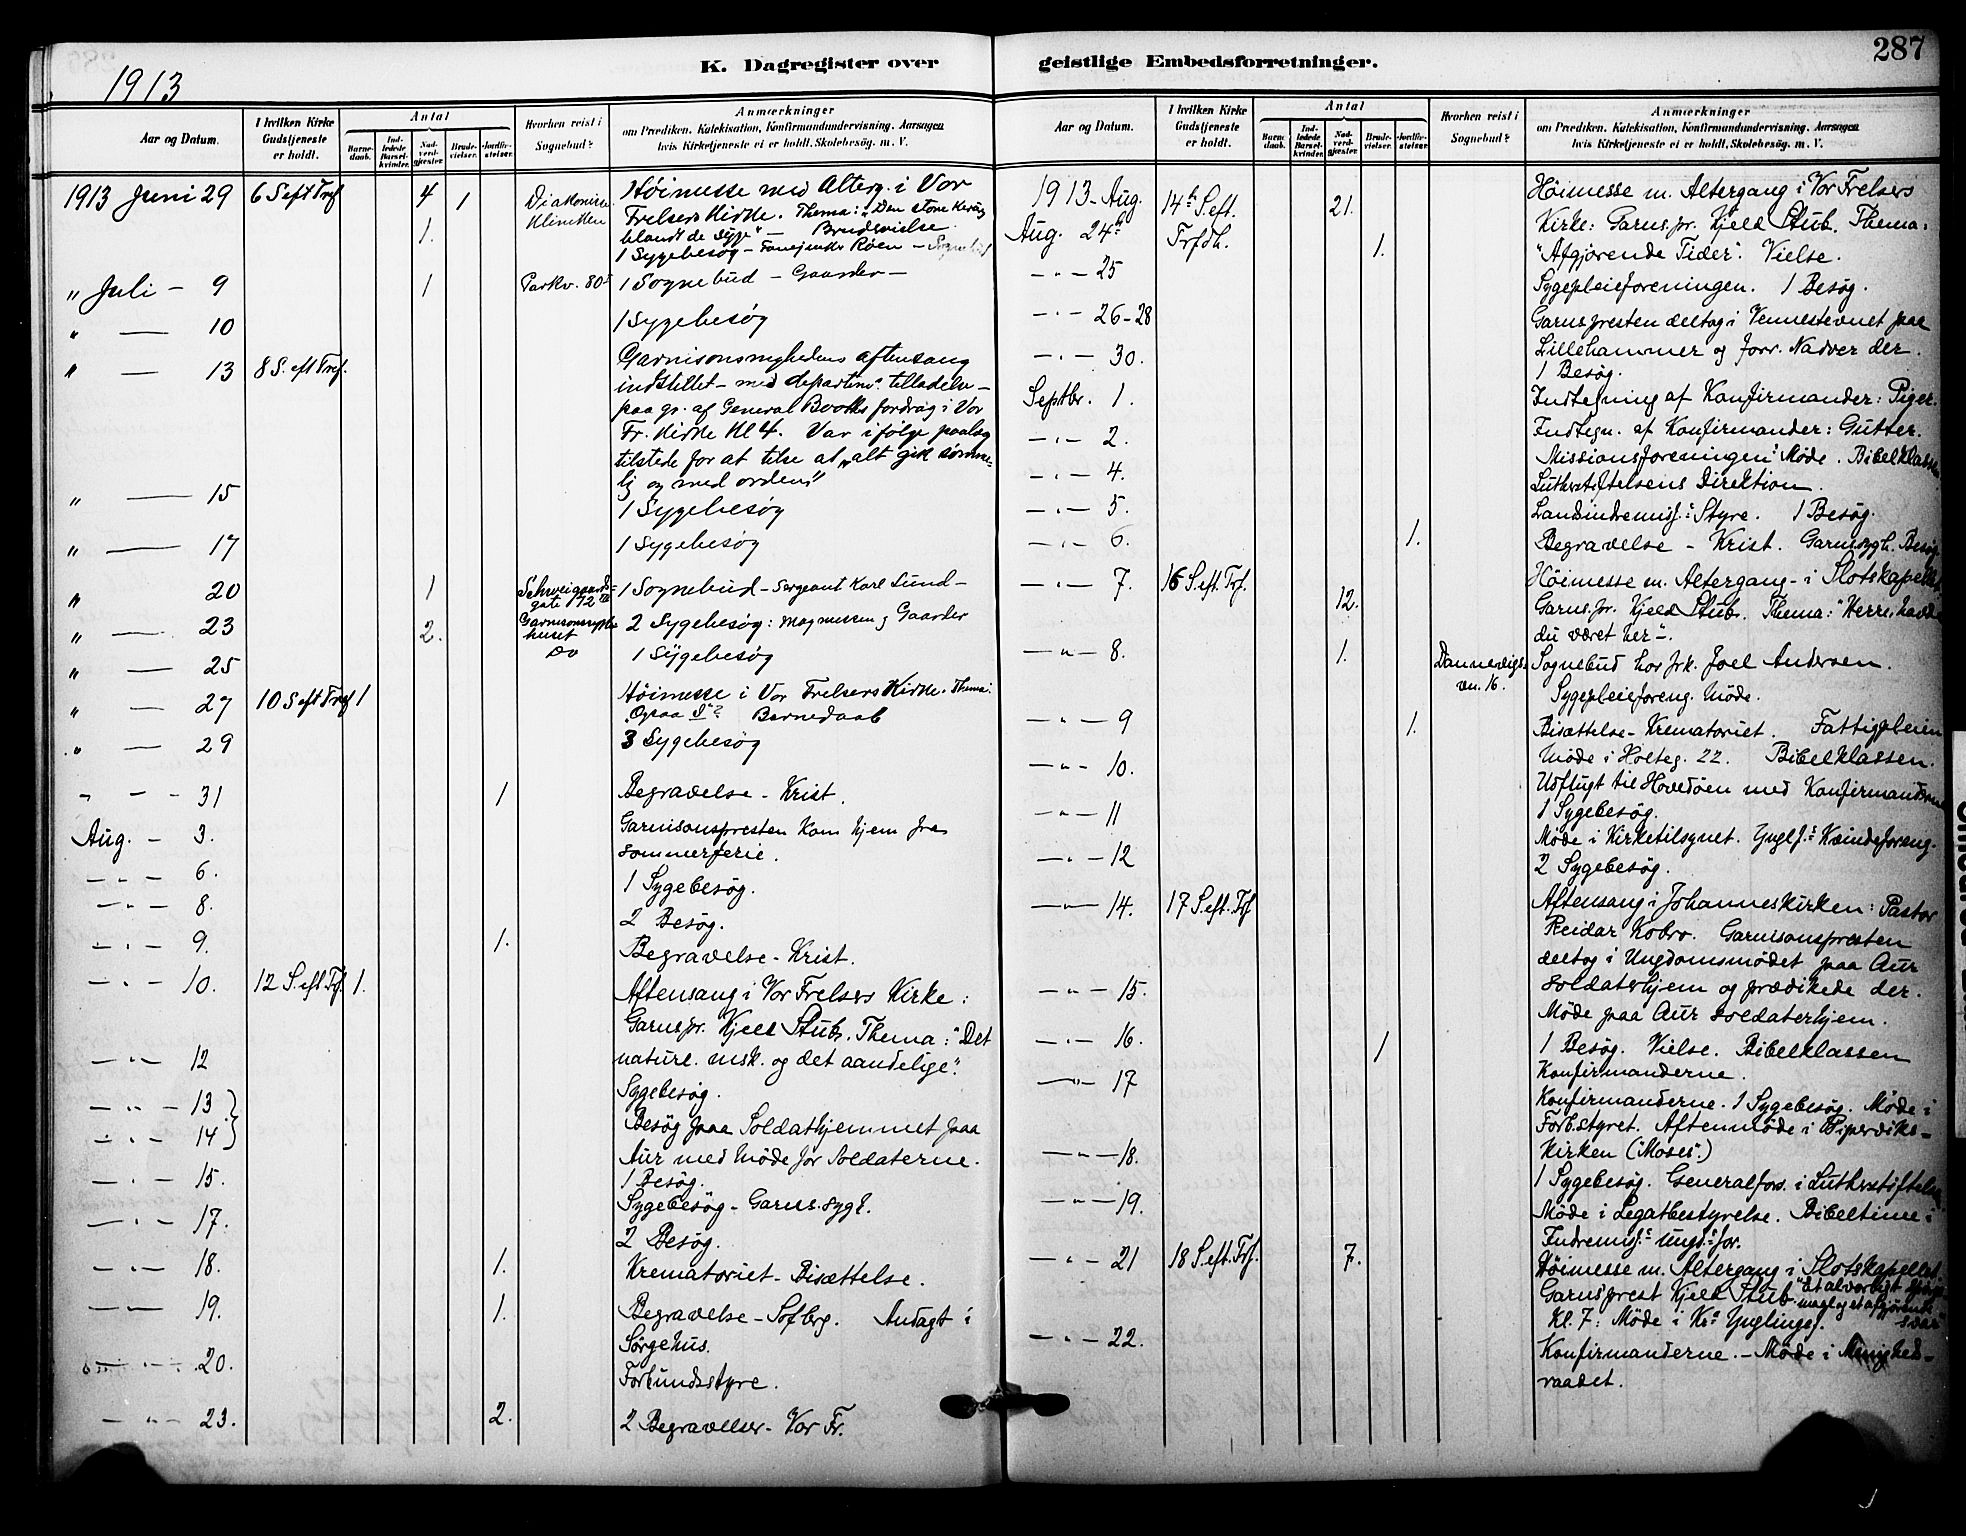 287
1913
K. Dagregister over geistlige Embedsforretninger.
Aar og Datum.
I hvilken Kirke Gudstjeneste er holdt.
Antal
Barne-daab.
Ind-ledede Barsel-kvinder.
Nad-verd-gjæster.
Brude-vielser.
Jordfæ-stelser.
Hvorhen reist i Sognebud?
Anmærkninger
om Prædiken, Katekisation, Konfirmandundervisning, Aarsagen
hvis Kirketjeneste ei er holdt, Skolebesøg m. V.
1913 Juni 29 6 S eft Tref 4 1 Diakonisse Klinikken Høimesse med Alterg. i Vor
Frelsers Kirke. Thema: "Den store Kirke
1. blandt de syge" — Brudevielse
1 Sygebesøg — Røen — Sognebud
" Juli — 9 1 Parkv. 80 1 Sognebud — Gaarder —
" — 10 1 Sygebesøg
" — 13 8 S. eft Tref. Garnisonsmenighedens aftensang
indstillet — med departem. tilladelse —
paa gr. af General Booths foredrag i Vor
Fr. Kirke Kl 4. Var i følge paalæg
tilstede for at tilse at "alt gik sømme-
lig og med orden"
" — 15 1 Sygebesøg
" — 17 1 Sygebesøg
" 20 1 Schweigaards-gate 72 1 Sognebud — Sergeant Karl Lund —
" — 23 2. Garnisonssyge-huset 2 Sygebesøg: Magnussen og Gaarder
" — 25 do 1 Sygebesøg
" — 27 10 S eft Tref 1 Høimesse i Vor Frelsers Kirke. Thema:
Barnedaab
" — 29 3 Sygebesøg
" - - 31 1 Begravelse — Krist.
Aug. — 3. Garnisonspresten kom hjem fra
sommerferie.
— " — 6. 1 Sygebesøg.
— " — 8. 2 Besøg.
— " — 9. 1. Begravelse — Krist.
— " — 10. 12 S. eft Trf. 1. Aftensang i Vor Frelsers Kirke:
Garns.pr. Kjeld Stub. Thema: "Det
nature. msk. og det aandelige".
— " — 12 Sygebesøg.
— " — 13 } Besøg paa Soldathjemmet paa
— " — 14 } Aur med Møde for Soldaterne.
— " — 15. 1 Besøg.
Sygebesøg — Garns. sygh.
— " — 17. 2 Besøg.
— " — 18. 1. Krematoriet — Bisættelse.
— " — 19. 1. Begravelse — Sofbrg. Andagt i
Sørgehus.
— " — 20. Forbundsstyre.
— " — 23. 2. 2 Begravelser — Vor Fr.
Aar og Datum.
I hvilken Kirke Gudstjeneste er holdt.
Antal
Barne daab.
Ind-ledede Barsel-kvinder.
Nad-verd-gjæster.
Brude-vielser.
Jordfæ-stelser.
Hvorhen reist i Sognebud?
Anmærkninger
om Prædiken, Katekisation, Konfirmandundervisning, Aarsagen
hvis Kirketjeneste ei er holdt, Skolebesøg m. V.
1913 — Aug. 14de S. eft. 21. Høimesse m. Altergang i Vor Frelsers
Aug. 24de Trfdh. 1. Kirke: Garns.pr. Kjeld Stub. Thema:
"Afgjørende Tider". Vielse.
— " — 25 Sygepleieforeningen. 1 Besøg.
— " — 26-28 Garns.presten deltog i Vennestevnet paa
Lillehammer og forr. Nadver der.
— " — 30. 1 Besøg.
Septbr. 1. Indtegning af Konfirmander: Piger.
— " — 2. Indtegn. af Konfirmander: Gutter.
Missionsforeningen: Møde. Bibelklassen
— " — 4. Lutherstiftelsens Direktion.
— " — 5. Landsindremisj. Styre. 1 Besøg.
— " — 6. 1. Begravelse — Krist. Garns.sygh. Besøg.
— " — 7. 16 S. eft. Trf. 12. Høimesse m. Altergang — i Slotskapellet
Garns.pr. Kjeld Stub. Thema: "Herre, havde
du været her".
— " — 8. 1. Dannevigs-vn. 16. Sognebud hos frk. Joel Andersen.
Sygepleieforeng. Møde.
— " — 9 1. Bisættelse — Krematoriet. Fattigpleien
Møde i Holteg. 22. Bibelklassen.
— " — 10. Udflugt til Hovedøen med Konfirmanderne
1 Sygebesøg.
— " — 11 Møde i Kirketilsynet. Kvindeforeng.
— " — 12 2 Sygebesøg.
— " — 14. 17 S. eft. Trf Aftensang i Johanneskirken: Pastor
Reidar Kobro. Garnisonspresten
deltog i Ungdomsmødet paa Aur
soldaterhjem og prædikede der.
— " — 15. Møde paa Aur soldaterhjem.
— " — 16. 1 1 Besøg. Vielse. Bibelklassen
Konfirmanderne.
— " — 17 Konfirmanderne. 1 Sygebesøg. Møde i
Forb.styret. Aftenmøde i Pipervikskirken ("Moses".)
— " — 18. 1 Sygebesøg. Generalfors. i Lutherstiftelsen
— " — 19. Møde i Legatbestyrelse. Bibeltime i
Indremisj. Ungd. for.
— " — 21 18 S. eft. Trf. 7. Høimesse m. Altergang i Slotskapellet
Garns.prest Kjeld Stub "Et alvorligt spørgs-
maal og et afgjørende svar"
Kl. 7: Møde i Kr. Ynglingef.
— " — 22. Konfirmanderne. — Møde i Menigheds-
raadet.